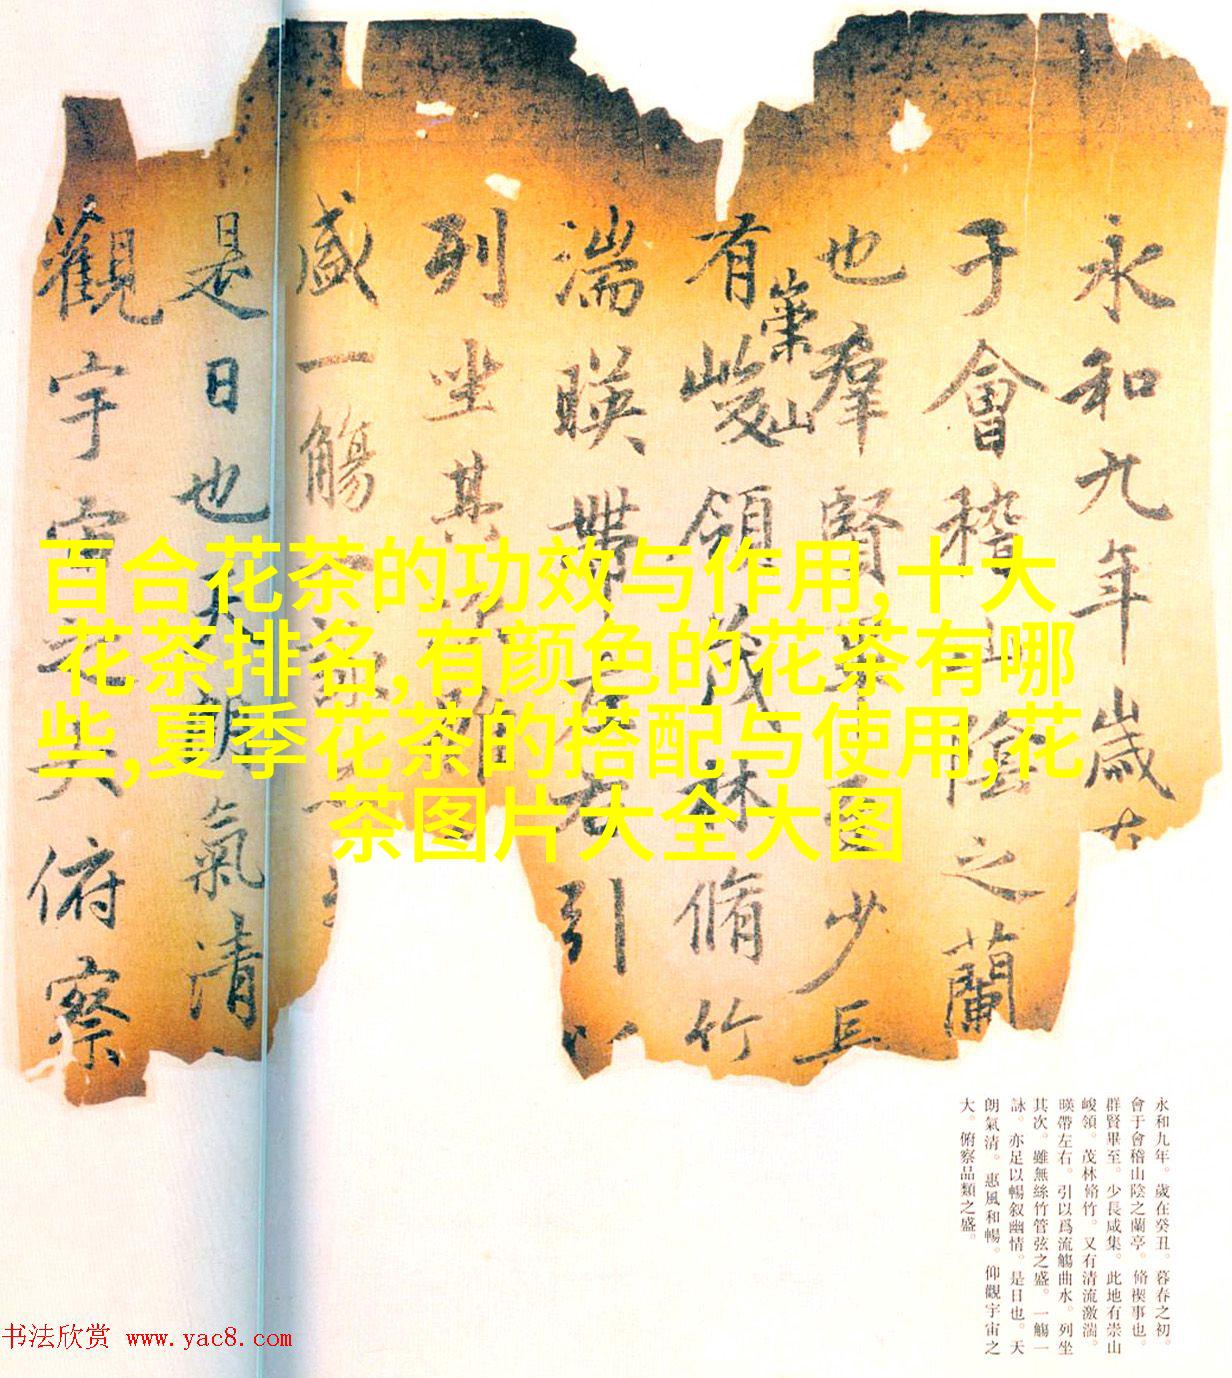 永和九年歲在
于會稽山陰之蘭
也羣賢畢至少長
有崇山峻領茂林脩竹
湍暎帶左右引以
列坐其次
盛一觴一詠
是日也天朗氣清
觀宇宙之大俯察
百合花茶的功效与作用,十大
花茶排名,有颜色的花茶有哪
些,夏季花茶的搭配与使用,花
茶图片大全大图
永和九年。歲在癸丑。暮春之初。
會于會稽山陰之蘭亭。脩禊事也。
群賢畢至。少長咸集。此地有崇山
峻領。茂林脩竹。又有清流激湍。
暎帶左右。引以爲流觴曲水。列坐
其次。雖無絲竹管弦之盛。一觴一
詠。亦足以暢叙幽情。是日也。天
朗氣清。惠風和暢。仰觀宇宙之
大。俯察品類之盛。
书法欣赏 www.yac8.com